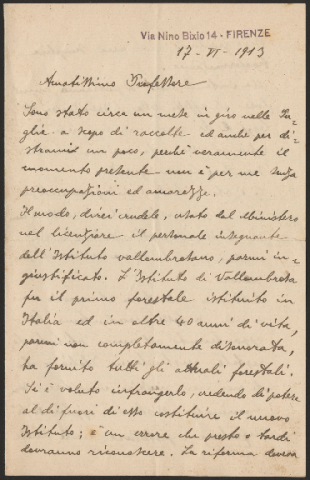 Via Nino Bixio 14 - FIRENZE
17 - VI - 1913
Amatissimo Professore
Sono stato circa un mese in giro nelle Pu-
glie a scopo di raccolte ed anche per di-
strarmi un poco, perchè veramente il
momento presente non è per me senza
preoccupazioni ed amarezze.
Il modo, direi crudele, usato dal Ministero
nel licenziare il personale insegnante
dell'Istituto vallombrosano, parmi in-
giustificato. L'Istituto di Vallombrosa
fu il primo forestale istituito in
Italia ed in oltre 40 anni di vita,
parmi non completamente disonorata,
ha fornito tutti gli attuali forestali.
Si è voluto infrangerlo, credendo di potere
al di fuori di esso costituire il nuovo
Istituto; è un errore che presto o tardi
dovranno riconoscere. La riforma doveva